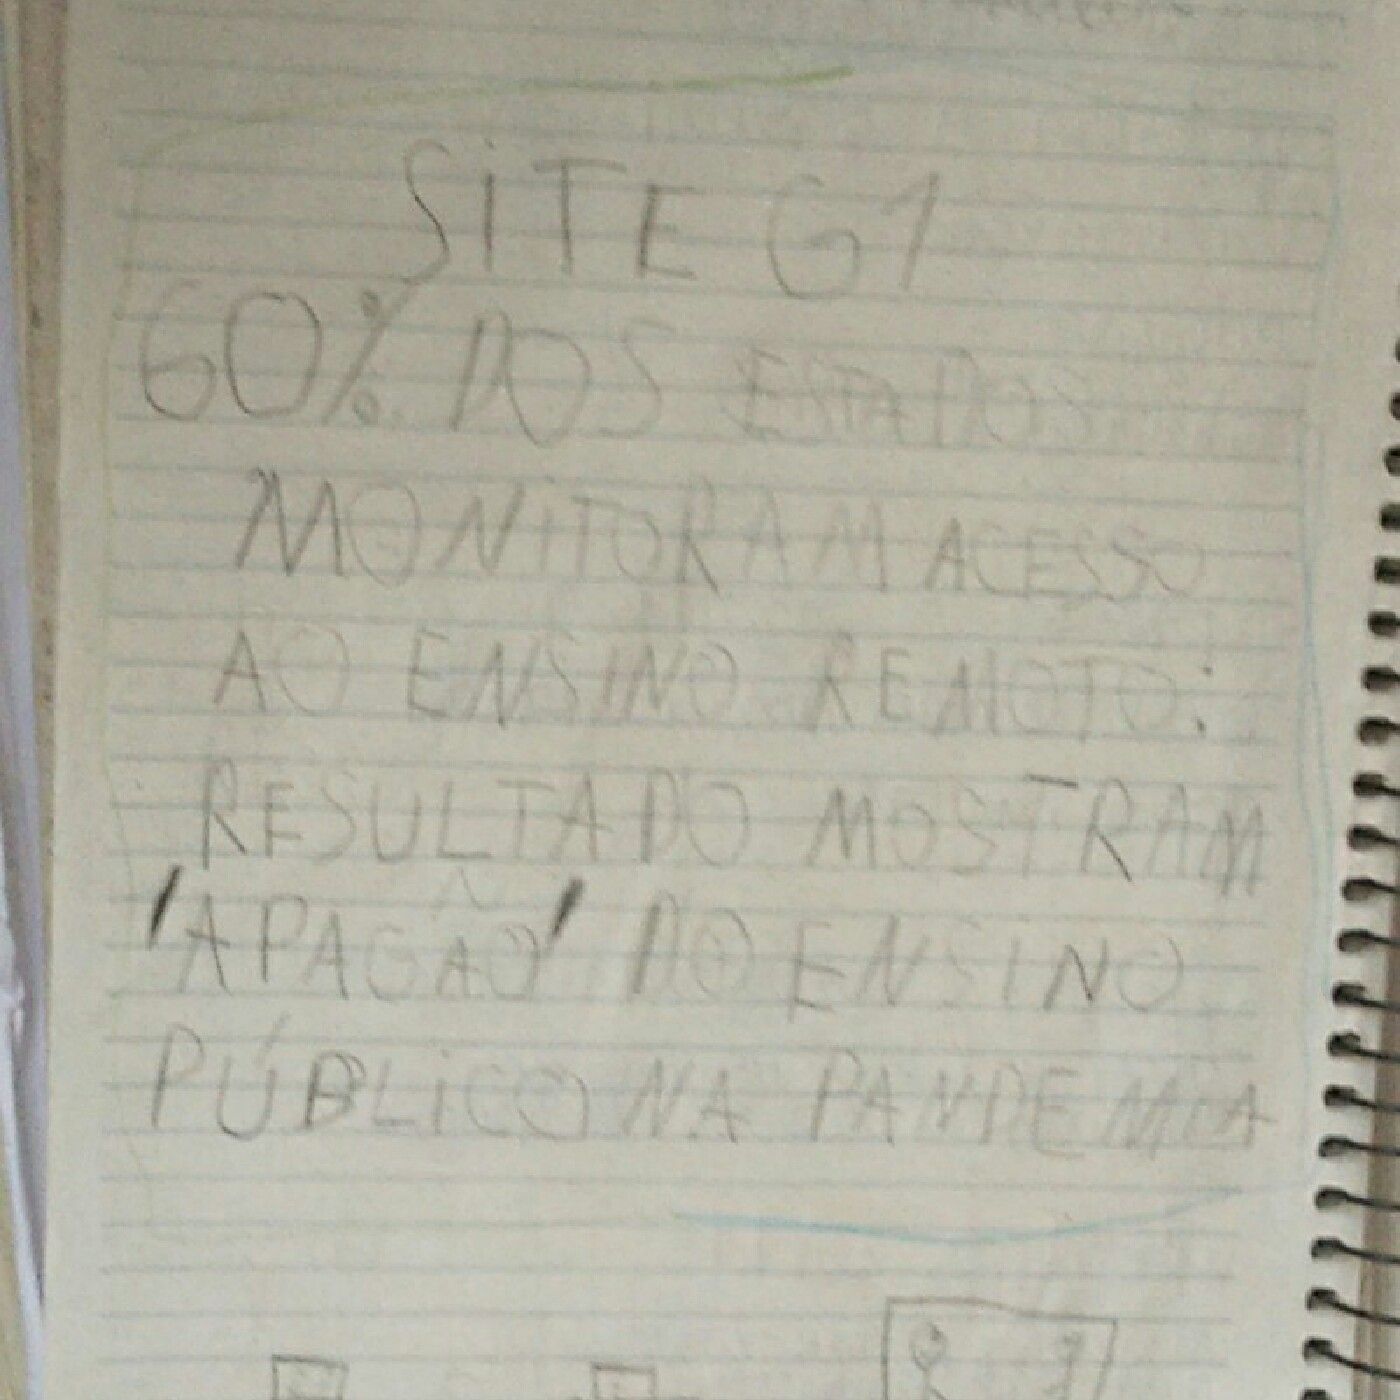 SiTE G1
60% DOS ESTADOS
MONiTORAM ACESSO
AO ENSINO REMOTO:
RESULTADO MOSTRAM
'APAGÃO' DO ENSINO
PÚBLiCO NA PANDEMiA